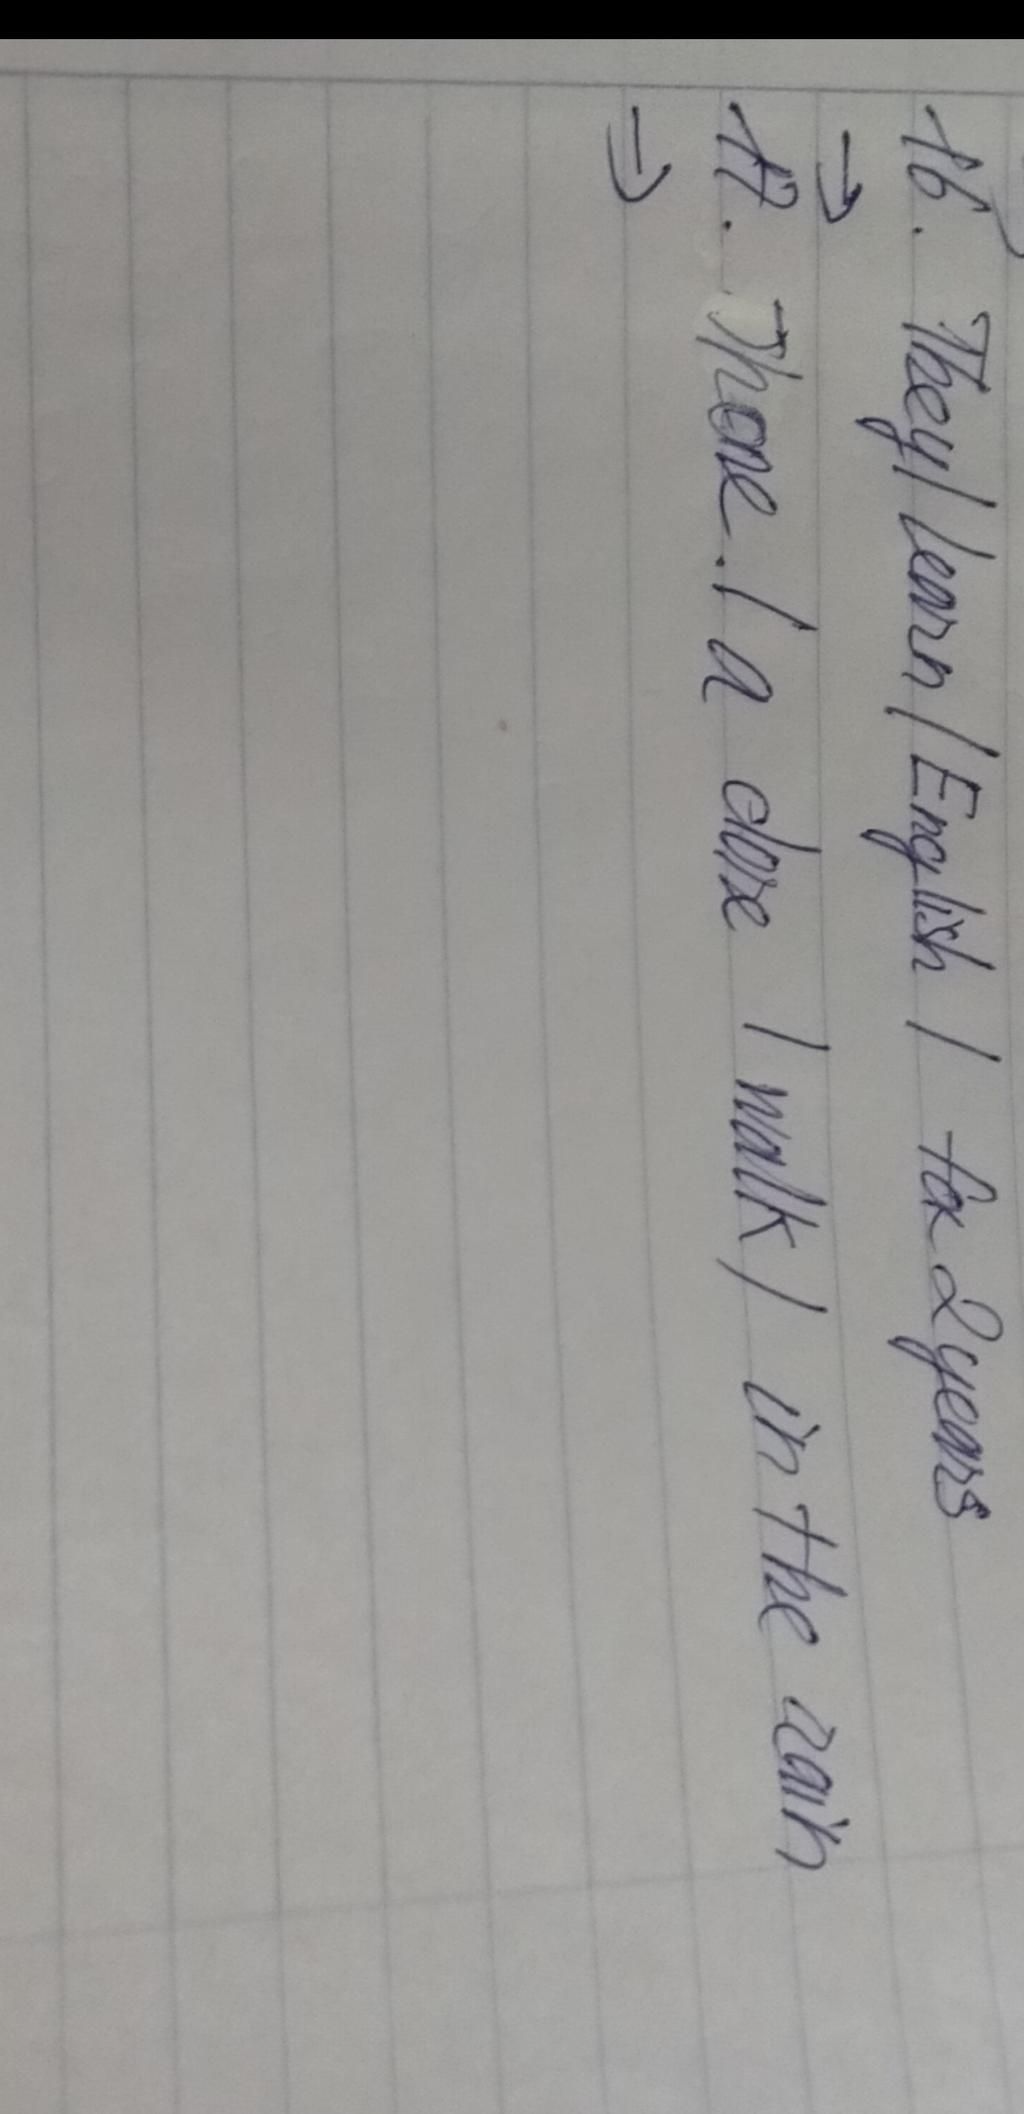 16. They / learn / English / for 2 years
→
17. There . / a / walk / in the rain
⇒